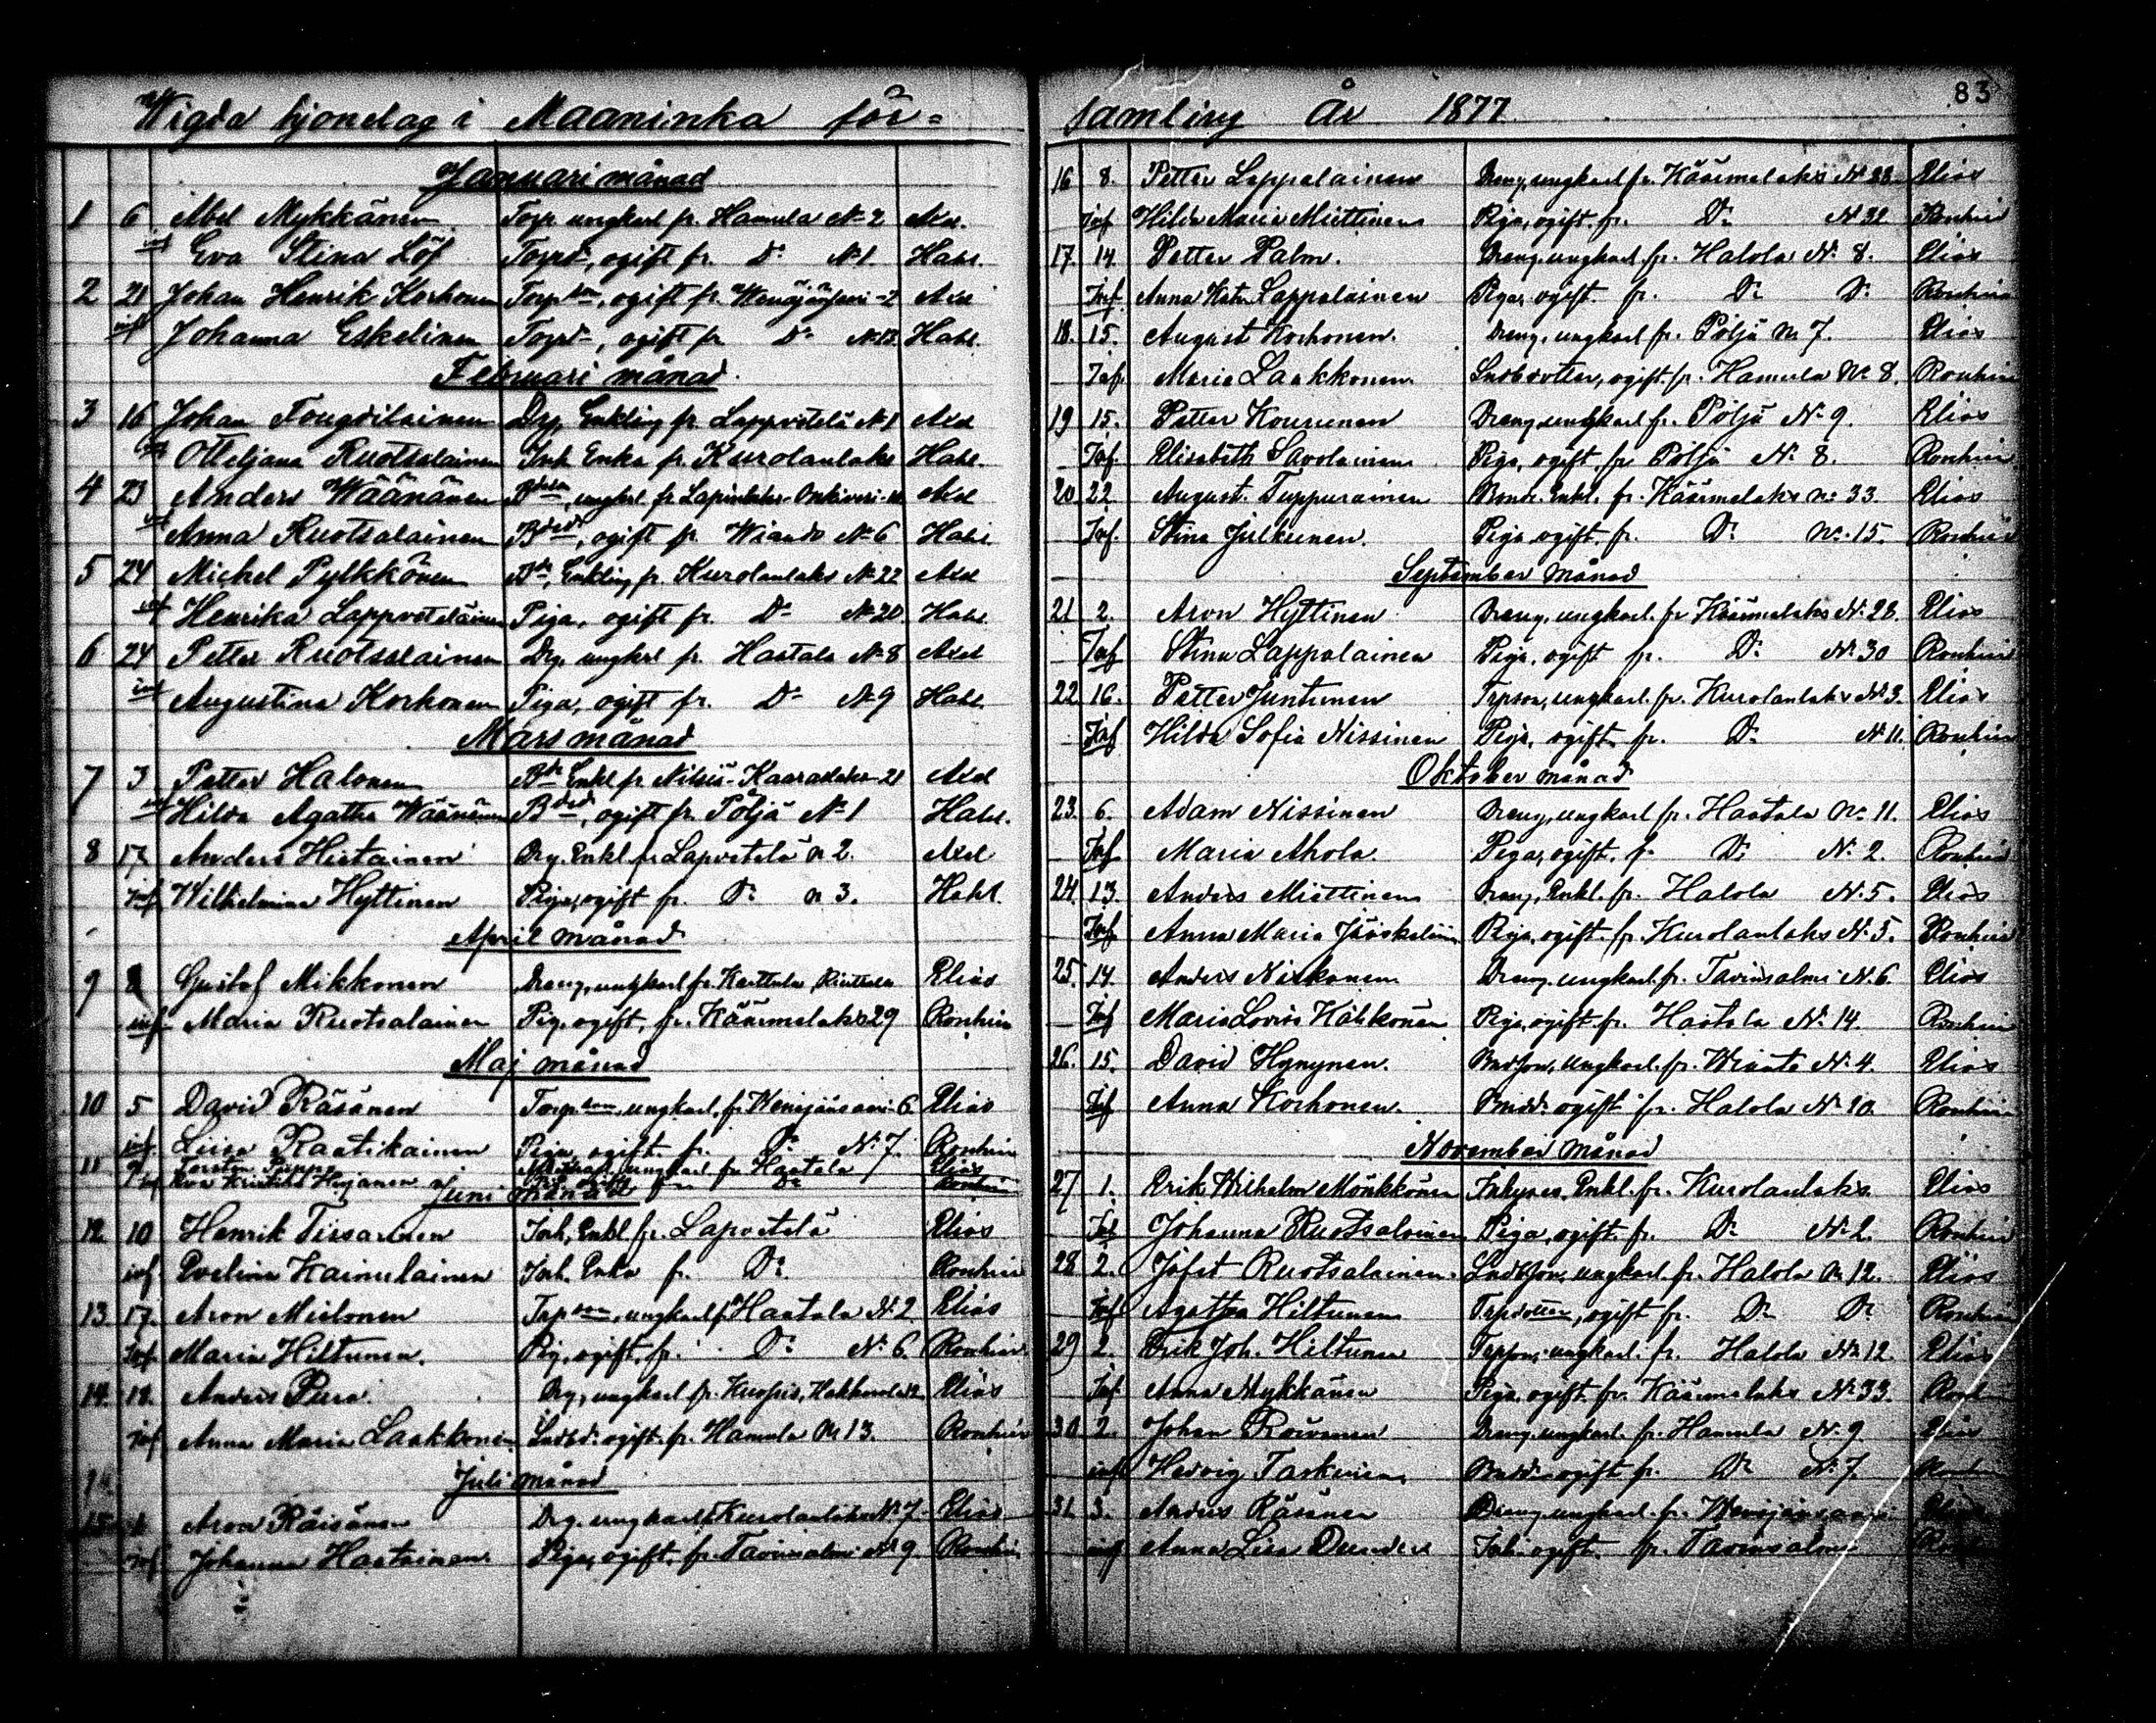 83
Wigda hjonelag i Maaninka för=
Januari månad
1 6 Abel Mykkänen Torp. ungkarl fr. Hamula No 2 Axel
inf Eva Stina Löf Torpd, ogift fr. Do No 1 Hahl.
2 21 Johan Henrik Korhonen Torpson, ogift fr. Wenäjänsaari-2 Axel
inf Johanna Eskelinen Torpd, ogift fr Do No 13 Hahl.
Februari månad
3 16 Johan Fougdilainen Drg, Enkling fr Lappvetelä No 1 Axel
inf Ottiljana Ruotsalainen Inh. Enka fr. Kurolanlaks Hahl.
4 23 Anders Wäänänen ungkrl fr Lapinlaks Axel
inf Anna Ruotsalainen ogift fr Wianto No 6 Hahl.
5 24 Michel Pylkkönen Enkling fr. Kurolanlaks No 22 Axel
inf Henrika Lappveteläinen Piga, ogift fr. Do No 20 Hahl.
6 24 Petter Ruotsalainen Drg. ungkrl fr. Haatala No 8 Axel
inf Augustina Korhonen Piga, ogift fr. Do No 9 Hahl.
Mars månad
7 3 Petter Halonen Enkl fr Nilsiä 21 Axel
inf Hilda Agatha Wäänänen ogift fr. Pöljä No 1 Hahl.
8 17 Anders Hiltainen Drg. Enkl fr Lapvetelä No 2. Axel
inf Wilhelmina Hyttinen Piga, ogift fr. Do No 3. Hahl.
April månad
9 Gustaf Mikkonen Dreng, ungkarl fr. Karttula Elias
inf Maria Ruotsalainen Pig. ogift, fr. Käärmelaks 29 Ronkain
Maj månad
10 5 David Räsänen Torpson, ungkarl, fr Wenäjänsaari-6 Elias
inf. Liisa Raatikainen Piga, ogift. fr. Do No 7.
11 Torsten ungkarl fr Haatala Elias
Juni månad
12 10 Henrik Tissarinen Inh, Enkl fr. Lapvetelä Elias
inf Evelina Kainulainen Inh. Enka fr. Do
13 17. Aron Miilonen Torpson, ungkarl fr Haatala No 2 Elias
inf Maria Hiltunen. Pig, ogift, fr. Do No 6
14. Anders Pura Drg, ungkarl fr. Kuopio, Elias
inf Anna Maria Laakkonen Lndbd. ogift. fr. Hamula No 13.
Juli månad
15 Aron Räisänen Drg. ungkarl Kurolanlaks No 7 Elias
inf Johanna Haatainen. Piga, ogift, fr. Tavinsalmi No 9.
samling År 1877
16 8. Petter Lappalainen Dreng, ungkarl fr. Käärmelaks No 28 Elias
Inf Hilda Maria Miettinen Piga, ogift. fr. Do No 32
17. 14. Petter Palm. Dreng, ungkarl. fr. Halola No 8. Elias
Inf Anna Kaisa Lappalainen Piga, ogift. fr. Do Do
18. 15. August Korhonen. Dreng, ungkarl fr. Pöljä No 7. Elias
Inf. Maria Laakkonen. Lndbdotter, ogift. fr. Hamula No 8.
19 15. Petter Kourunen Dreng, ungkarl fr. Pöljä No 9. Elias
Inf Elisabeth Savolainen Piga, ogift fr Pöljä No 8.
20 22 August Tuppurainen Bonde, Enkl. fr. Käärmelaks No 33. Elias
Inf. Stina Julkunen. Piga ogift. fr. Do No 15.
September månad
21 2. Aron Hyttinen Dreng, ungkarl. fr Käärmelaks No 28. Elias
Inf Stina Lappalainen Piga, ogift fr. Do No 30
22 16. Petter Juntunen Trpson, ungkarl. fr. Kurolanlaks No 3. Elias
Inf Hilda Sofia Nissinen Piga, ogift fr. Do No 11.
Oktober månad
23. 6. Adam Nissinen Dreng, ungkarl fr. Haatala No 11. Elias
Inf Maria Ahola. Piga, ogift. fr Do No 2.
24. 13. Anders Miettinen Dreng, Enkl. fr. Halola No 5. Elias
Inf Anna Maria Jääskeläin Piga, ogift. fr. Kurolanlaks No 5.
25. 14. Anders Niskanen Dreng, ungkarl. fr. Tavinsalmi No 6. Elias
Inf Maria Lovisa Kähkönen Piga, ogift fr. Haatala No 14.
26. 15. David Hynynen. Bndson, ungkarl. fr. Wianto No 4. Elias
Inf Anna Korhonen. Bndd. ogift fr. Halola No 10.
November månad
27 1. Erik Wilhelm Mönkkönen Inhyses, Enkl. fr. Kurolanlaks Elias
Inf Johanna Ruotsalainen Piga, ogift. fr. Do No 2.
28 2. Jafet Ruotsalainen. Lndbson, ungkarl. fr. Halola No 12. Elias
Inf Agatha Hiltunen Trpdotter, ogift fr. Do Do
29 2. Erik Joh. Hiltunen Trpson, ungkarl. fr. Halola No 12. Elias
Inf Anna Mykkänen Piga, ogift. fr. Käärmelaks No 33.
30 2. Johan Roivanen Dreng, ungkarl. fr. Hamula No 9 Elias
inf Hedvig Taskinen Bndd. ogift fr. Do No 7.
31. 3. Anders Räsänen Dreng ungkarl. fr. Wenäjänsaari
inf Anna Lisa Dunder Inh. ogift. fr. Tavinsalmi